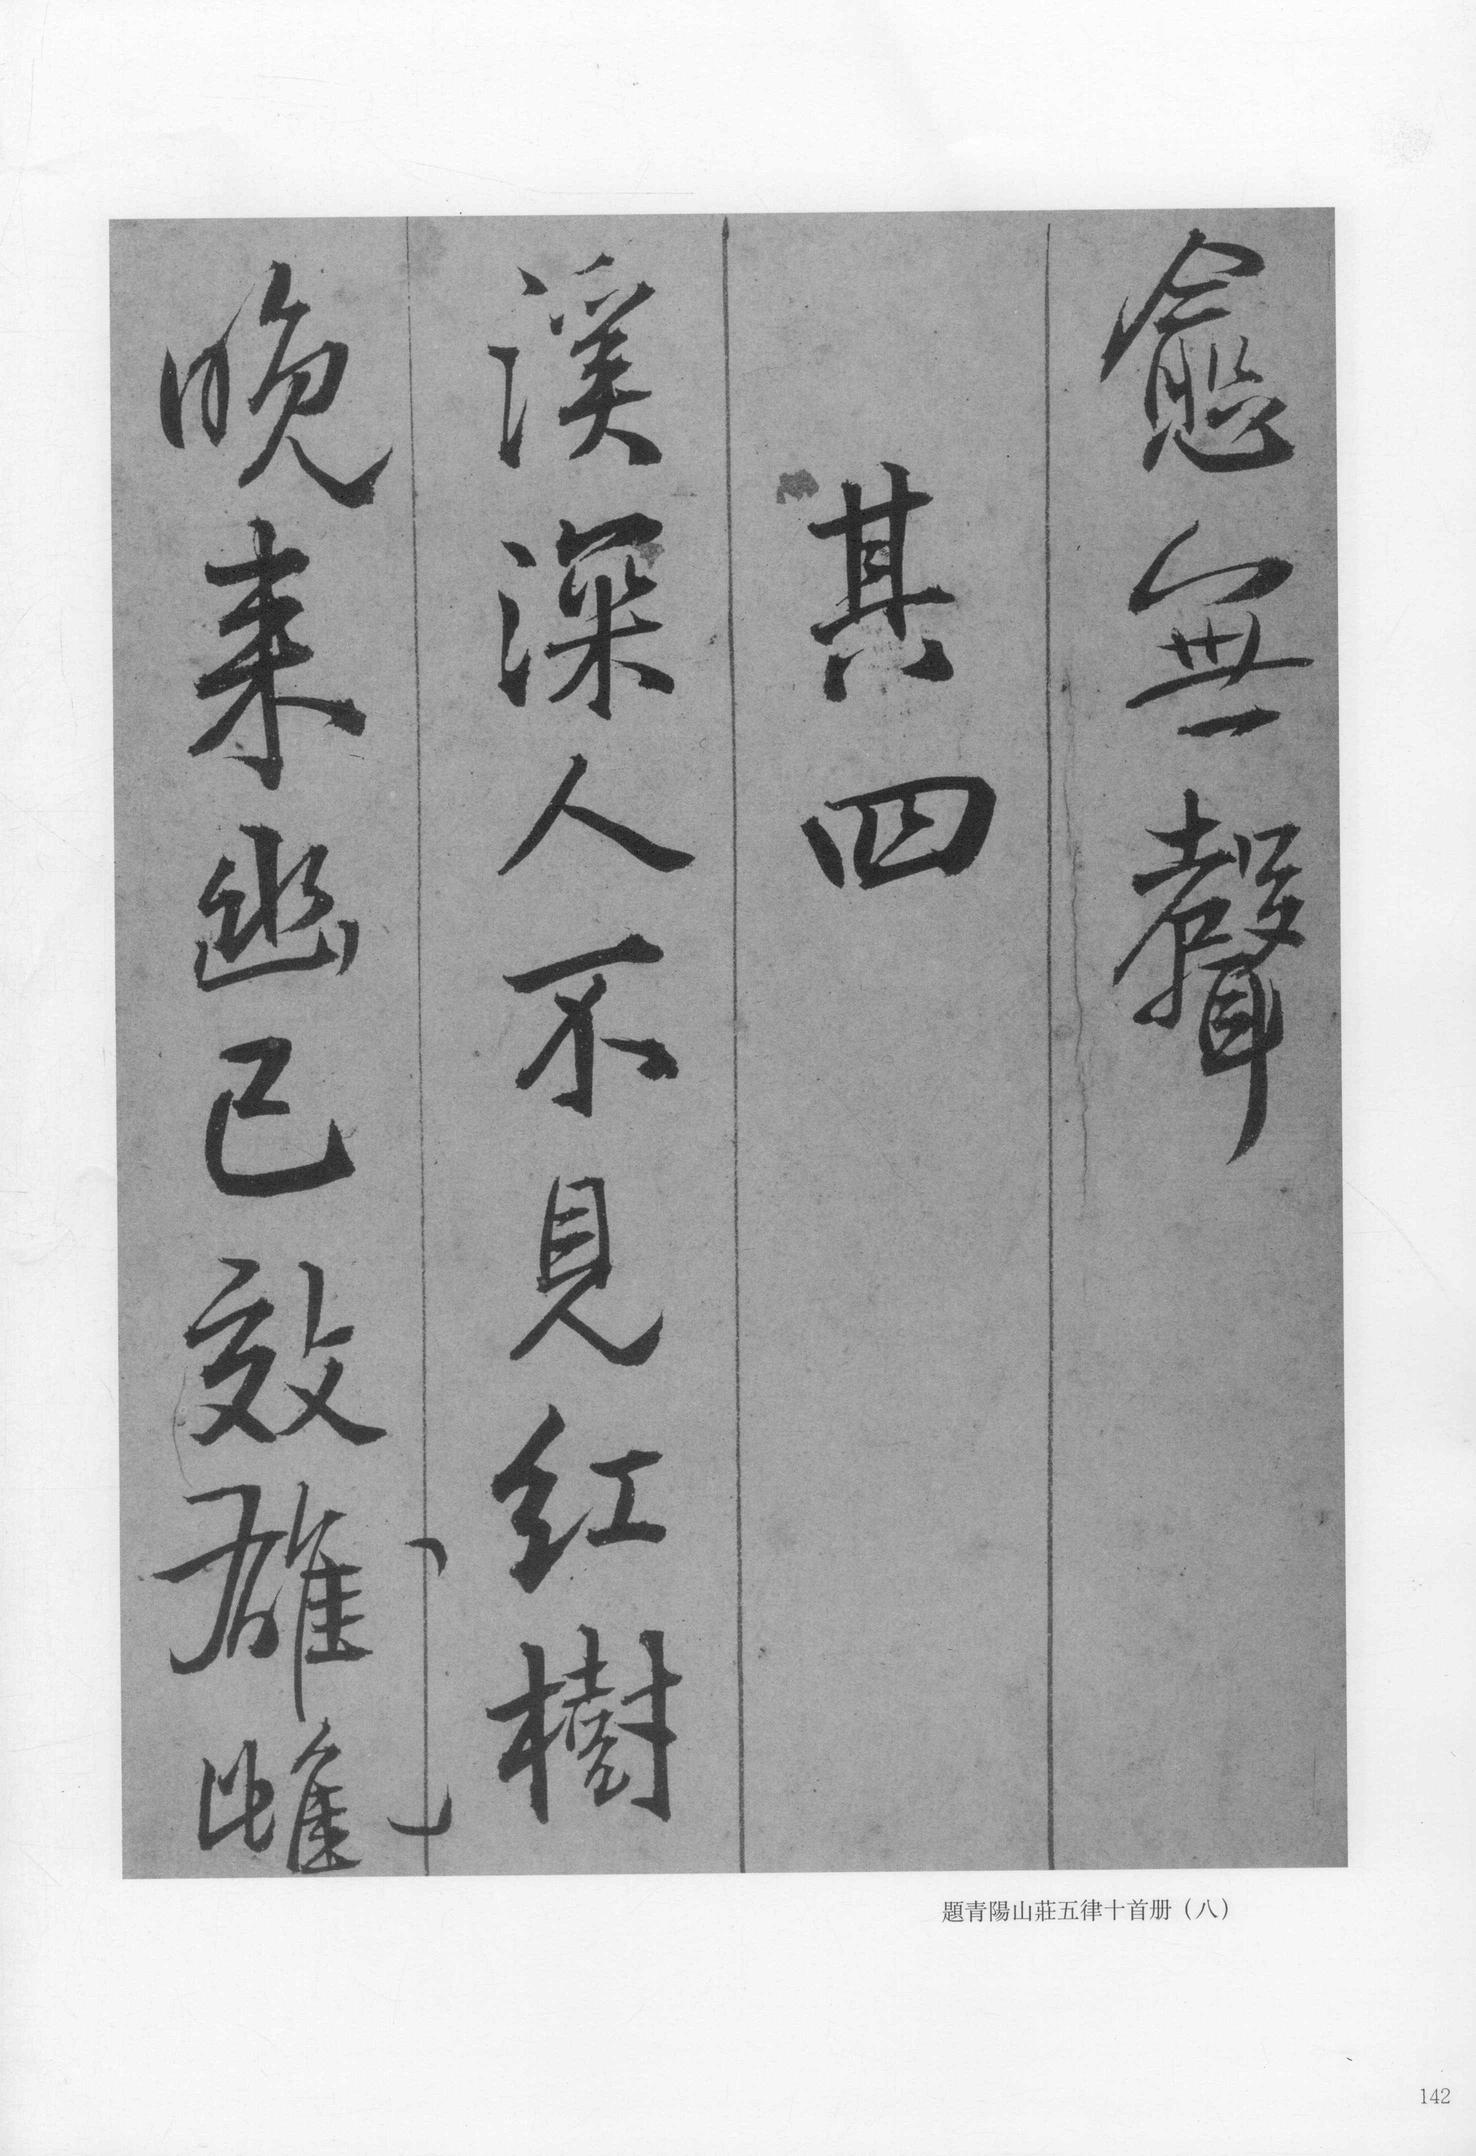 愈無聲
其四
溪深人不見紅樹
晚来幽已效雄雌
題青陽山莊五律十首册（八）
142